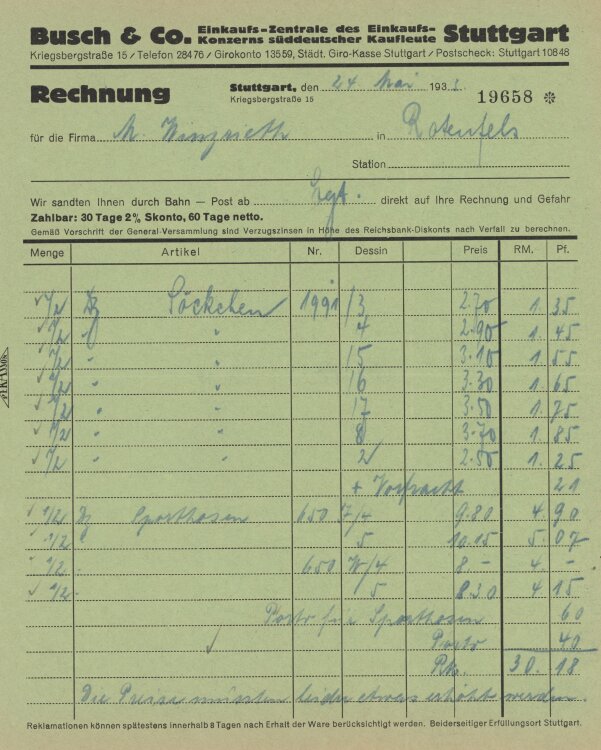 Busch & Co. Einkaufs-Zentrale des Einkaufs-Konzerns süddeutscher Kaufleute Stuttgart
Kriegsbergstraße 15 / Telefon 28476 / Girokonto 13559, Städt. Giro-Kasse Stuttgart / Postscheck: Stuttgart 10648
Rechnung Stuttgart, den 24 Mai 193
Kriegsbergstraße 15 19658 ✻
für die Firma M. in Rotenfels
Station
Wir sandten Ihnen durch Bahn — Post ab direkt auf Ihre Rechnung und Gefahr
Zahlbar: 30 Tage 2% Skonto, 60 Tage netto.
Gemäß Vorschrift der General-Versammlung sind Verzugszinsen in Höhe des Reichsbank-Diskonts nach Verfall zu berechnen.
Menge Artikel Nr. Dessin Preis RM. Pf.
1/2 Dz Söckchen 1991 /3 2.70 1. 35
1/2 " " 4 2.90 1. 45
1/2 " " 15 3.10 1. 55
1/2 " " 16 3.30 1. 65
1/2 " " 17 3.50 1. 75
1/2 " " 8 3.70 1. 85
1/2 " " 2 2.50 1. 25
+ Vorfracht 21
1/2 Dz Sporthosen 650 7/4 9.80 4. 90
1/2 " 5 10.15 5. 07
1/2 " 650 W/4 8 – 4. –
1/2 " 5 8.30 4 15
Porto für Sporthosen 60
Porto 40
RM. 30. 18
Die Preise mussten leider etwas erhöht werden.
Reklamationen können spätestens innerhalb 8 Tagen nach Erhalt der Ware berücksichtigt werden. Beiderseitiger Erfüllungsort Stuttgart.